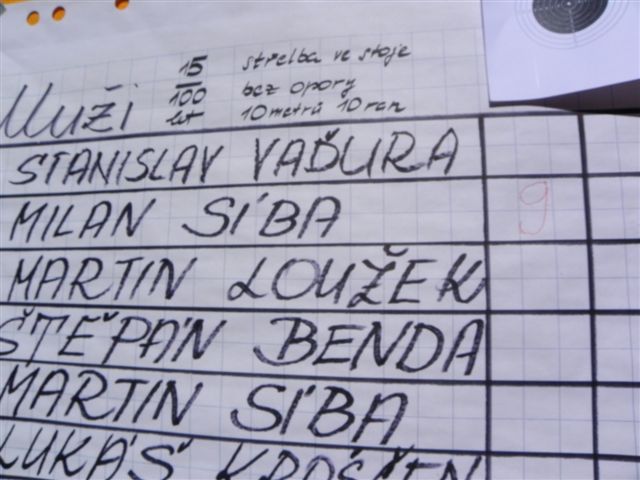 Muži 15 střelba ve stoje
100 bez opory
let 10 metrů 10 ran
STANISLAV VAĎURA
MILAN SÍBA 9
MARTIN LOUŽEK
ŠTĚPÁN BENDA
MARTIN SÍBA
LUKÁŠ